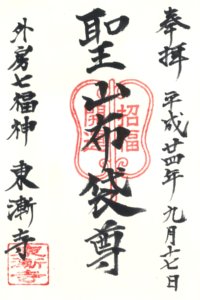 奉拝 平成廿四年九月十七日
聖山布袋尊
招福
開運
外房七福神 東漸寺